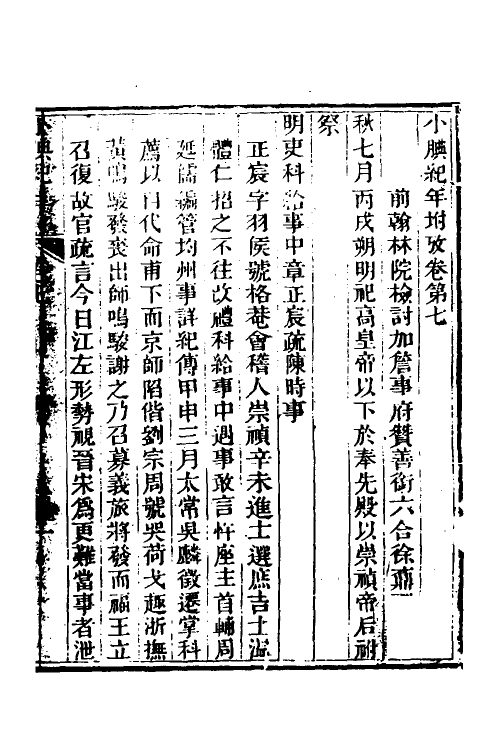 小腆紀年坿攷卷第七
前翰林院檢討加詹事府贊善銜六合徐鼒
秋七月丙戌朔明祀高皇帝以下於奉先殿以崇禎帝后祔
祭
明吏科給事中章正宸疏陳時事
正宸字羽侯號格菴會稽人崇禎辛未進士選庶吉士溫
體仁招之不往改禮科給事中遇事敢言忤座主首輔周
延儒編管均州事詳紀傳甲申三月太常吳麟徵遷掌科
薦以自代命甫下而京師陷偕劉宗周號哭荷戈趣浙撫
黃鳴駿發喪出師鳴駿謝之乃召募義旅將發而福王立
召復故官疏言今日江左形勢視晉宋爲更難當事者泄